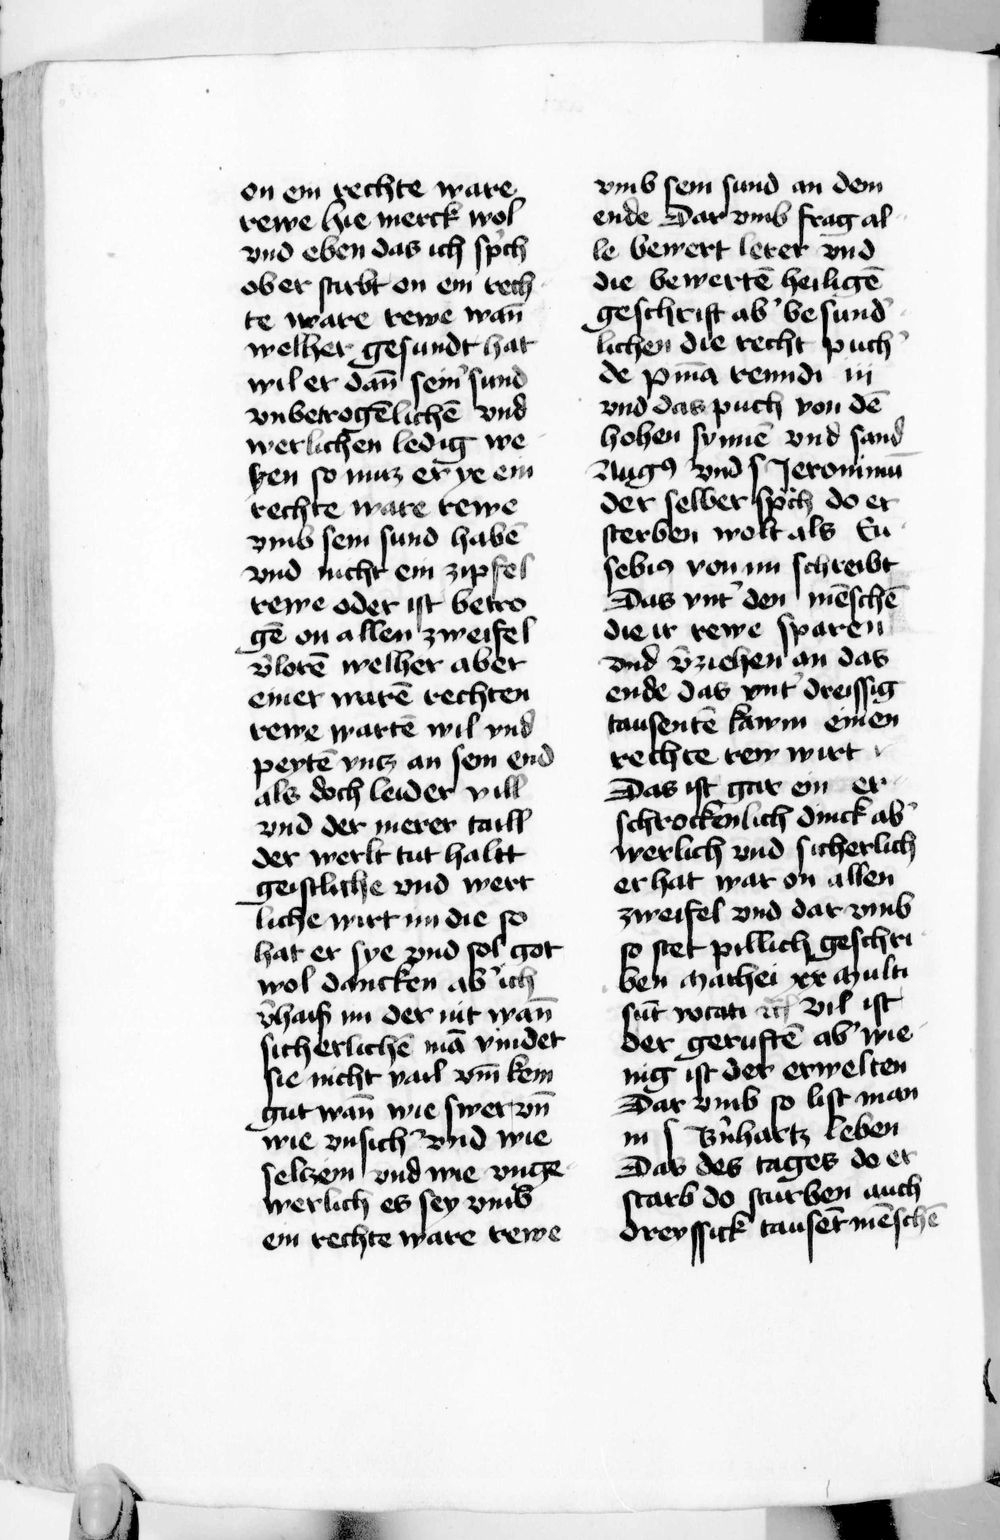 on ein rechte ware
rewe hie merck wol
vnd eben das ich sp̄ch
ob er stirbt on ein rech
te ware rewe wan̄
welher gesundt hat
wil er dan̄ sein' sund
vnbetrogēlichē vnd
werlichen ledig we
sen so muz er ye ein
rechte ware rewe
vmb sein sund habē
vnd nicht ein zipfel
rewe oder ist betro
gē on allen zweifel
v̄lorē welher aber
einer warē rechten
rewe wartē wil vnd
peytē vntz an sein end
als doch leider vill
vnd der merer taill
der werlt tut haltt
geistliche vnd wert
liche wirt im die so
hat er sye vnd sol got
wol dancken ab' ich
v̄haiß im der nit wan̄
sicherlichē mā vindet
sie nicht vail vm̄ kein
gut wan̄ wie swer vn̄
wie vnsich' vnd wie
selczein vnd wie vnge
werlich es sey vmb
ein rechte ware rewe
vmb sein sund an dem
ende Dar vmb frag al
le bewert lerer vnd
die bewertē heiligē
geschrift ab' besund'
lichen die recht puch'
de pm̄a remdi iij
vnd das puch von dē
hohen synnē vnd sand
Aug9 vnd s Jeronimū
der selber sp̄ch do er
sterben wolt als Eu
sebi9 von im schreibt
Das vnt' den mēschē
die ir rewe sparen
vnd v̄ziehen an das
ende das vnt' dreissig
tausentē kawm einen
rechte rew wirt
Das ist gar ein er
schrockenlich dinck ab'
werlich vnd sicherlich
er hat war on allen
zweifel vnd dar vmb
so stet pillich geschri
ben Mathei xx Multi
sūt vocati vil ist
der geruftē ab' wie
nig ist der erwelten
Dar vmb so list man
in s B'nhartz leben
Das des tages do er
starb do sturben auch
dreyssick tausēt mēschē